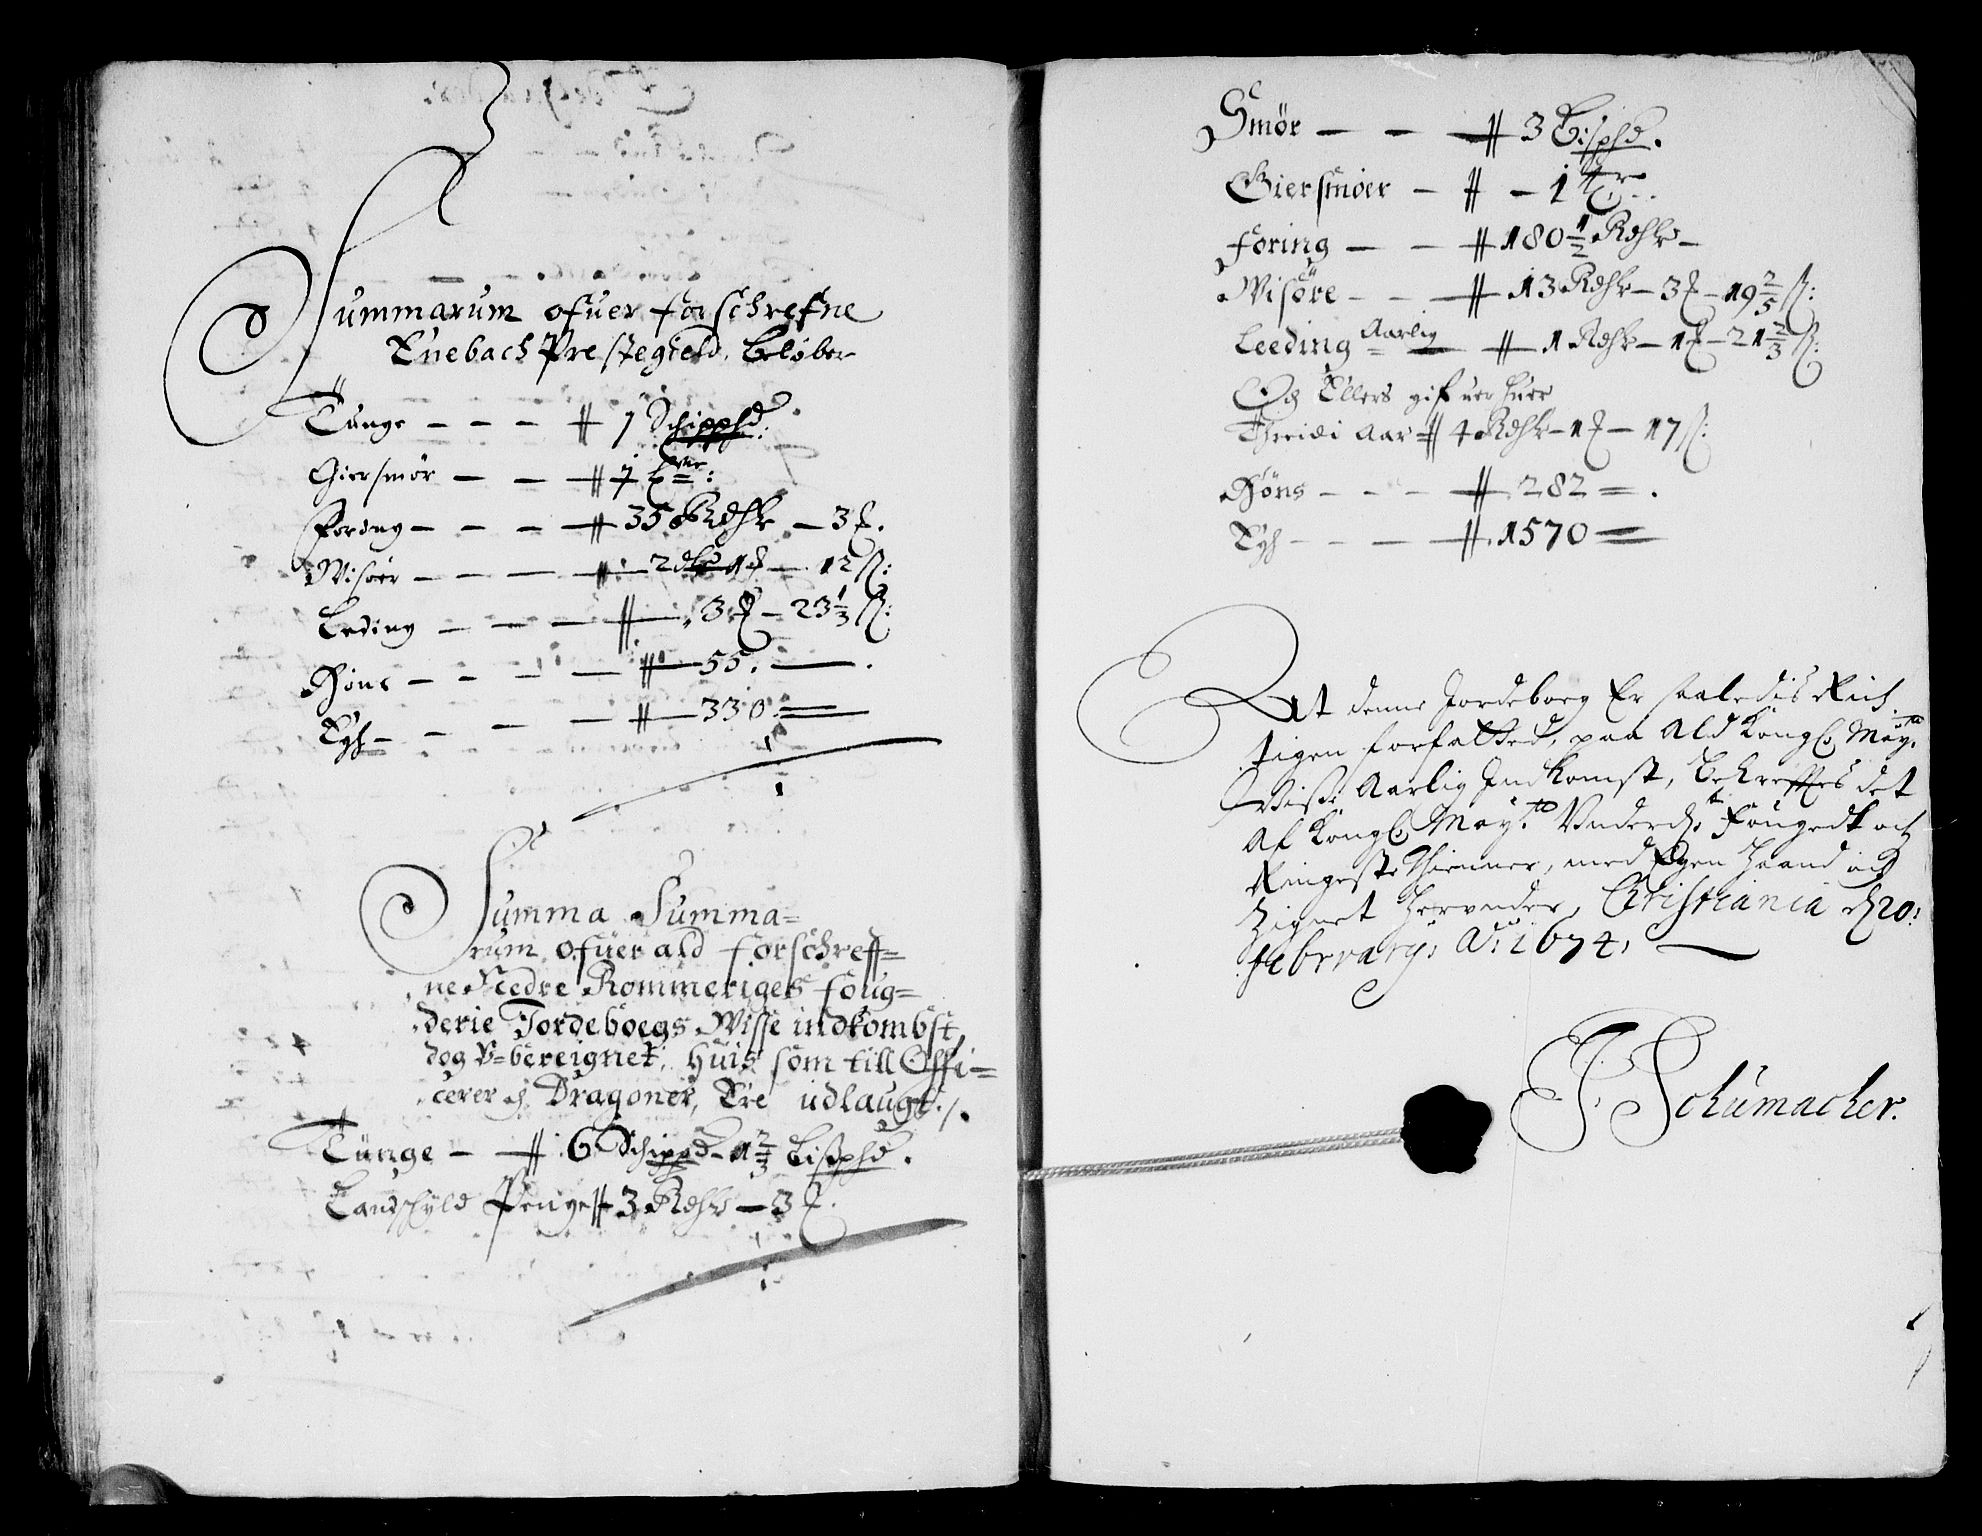 Summarum ofuer forschrefne
Enebach Prestegield, beløber
Tunge - - - # 1 Schippd:
Giersmør - - - # 1
Foring - - - # 35 Rdhlr - 3 #.
Wisøer - - - # 2 dlr 1 # - 12 ß:
Leding - - - # 3 # - 23 1/3 ß:
Høns - - - # 55.
Egh - - - # 330
Summa Summa=
rum ofuer ald forschreff=
ne Nedre Rommeriges foug=
derie Jordeboegs Wisse indkombst,
dog U=bereignet, huis som till Offi=
cerer og Dragoner, Ere udlaugt./.
Tunge - # 6 Schippd - 1 2/3 bißphd.
Landschyld Penge # 3 Rdhlr - 3 #.
Smør - - - # 3 Bisphd.
Giersmøer - # - 1
Foring - - # 180 1/2 Rdhlr -
Wisøre - - # 13 Rdhlr - 3 # - 19 2/5 ß:
Leeding Aarlig # 1 Rdhlr - 1 # - 21 2/3 ß:
Og Ellers gifuer huer
Threidi Aar # 4 Rdhlr - 1 # - 17 ß:
Høns - - - # 282 = .
Egh - - - # 1570 =
At denne Jordeboeg Er saaledis Rich,
tigen forfatted, paa Ald Kongl. May:ts
Wisse Aarlig Indkomst, bekrefftes det
Af Kongl. May:ts Underd: Fougedt och
Ringeste Thienner, med Egen Haand och
Zignet Herunder, Christiania d. 20:
Februarij: Ao: 1674.
J. Schumacher.